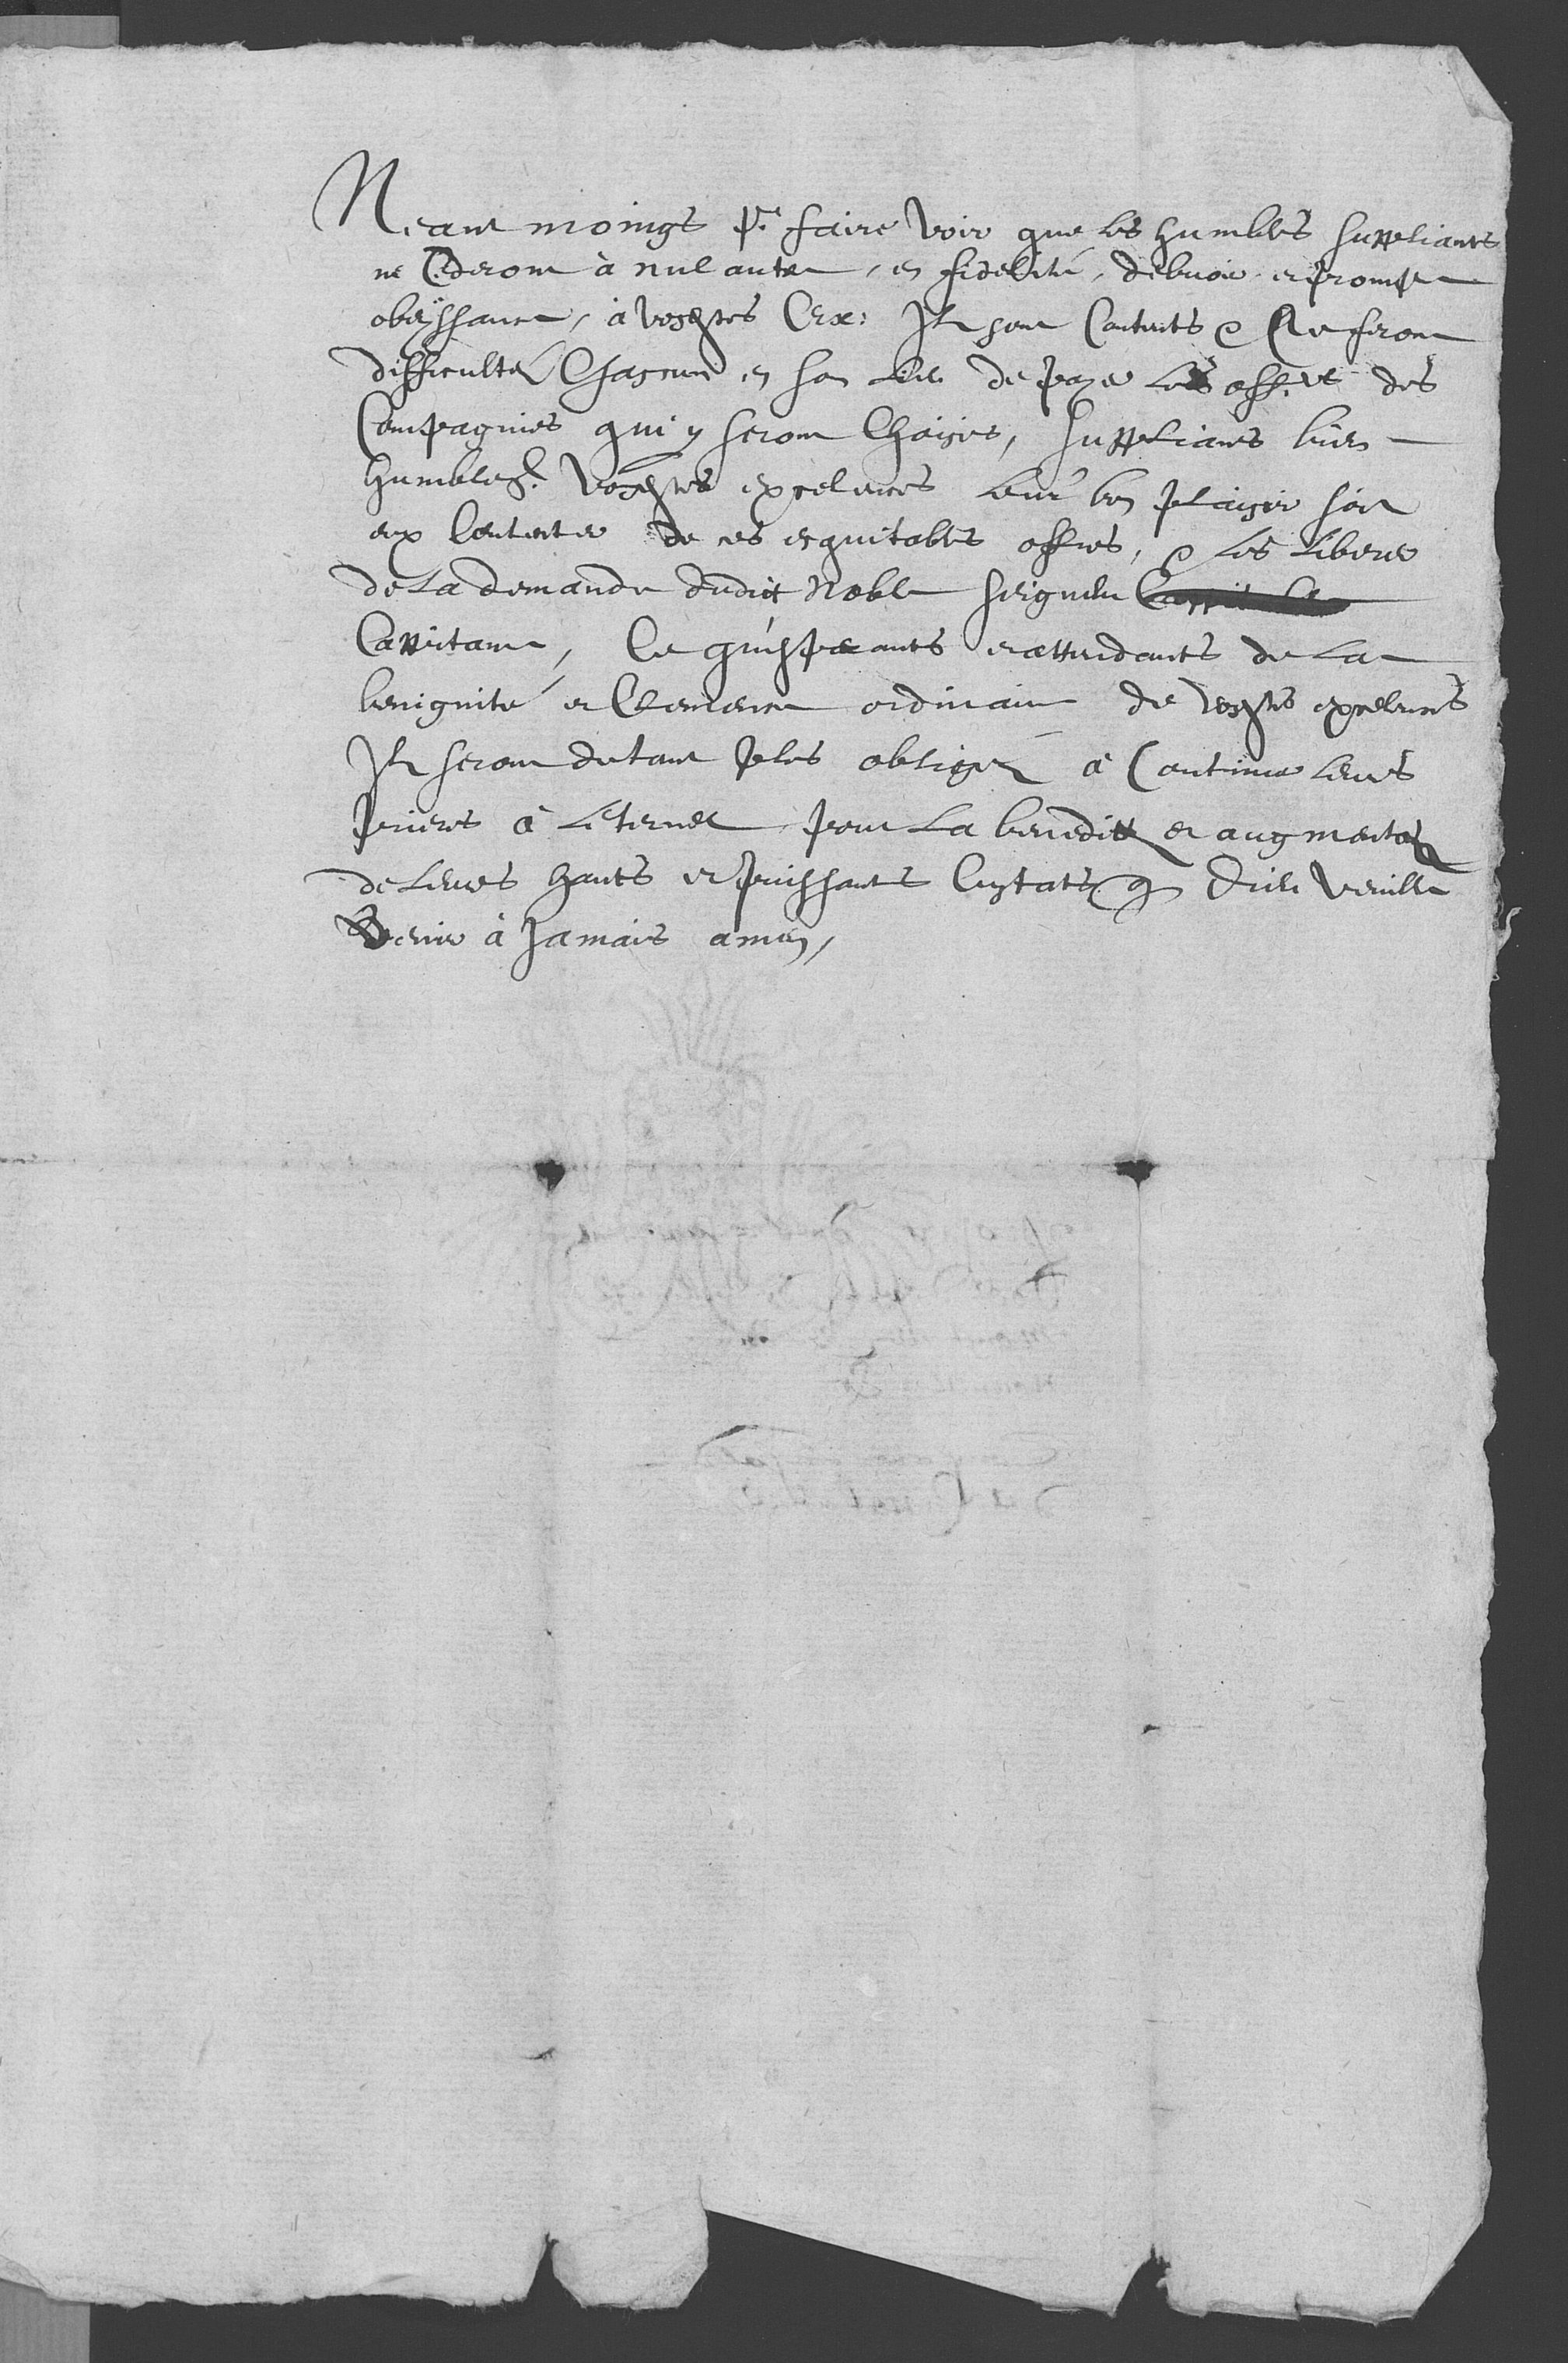 Neant moings pr. faire voir que les humbles suppliants
ne Cederont à nul autre, en fidelité, debvoir et prompte
obeÿssance, à vosdites Exce: Ilz sont Contents & Ne feront
difficultez Chascun en son lieu de payer les off.rs des
Compagnies qui y seront Choisies, suppliants bien
humblemt. vosdites excelences leur bon plaisir soit
eux Contenter de ces esquitables offres, & les liberer
de la demande dudict Noble seigneur
Cappitaine, Ce qu'esperants et attendants de la
benignité et Clemence ordinaire de vosdites excelences
Ilz seront dotant plus obligéz à Continuer leurs
prieres à l'eternel pour la benedition et augmentation
de leurs hauts et puissants Estats que Dieu veuille
benir à Jamais amen,